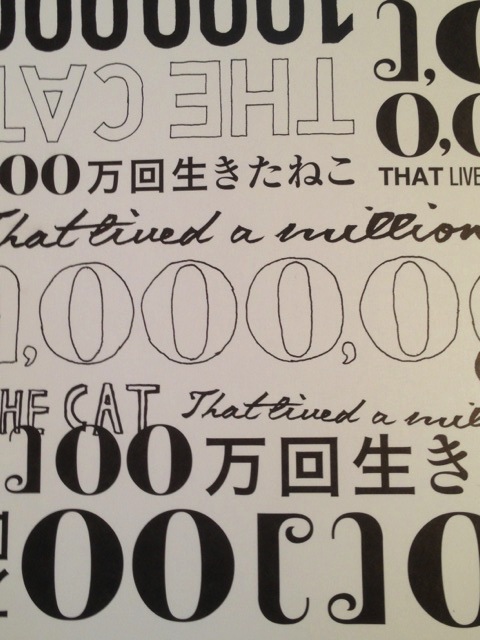 1000000
THE CAT
00万回生きたねこ
0,0
THAT LIVE
That lived a million
,000,0
THE CAT That lived a mil
100万回生き
00